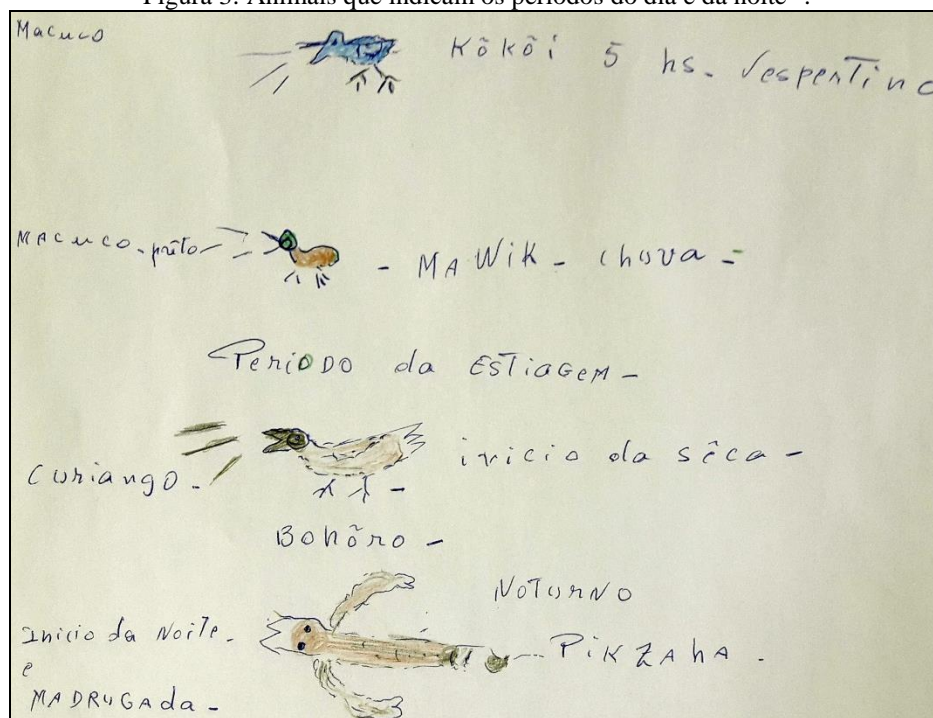 Figura 3: Animais que indicam os períodos do dia e da noite
Macuco
Kõkõi 5 hs. Vespertino
MACUCO-prêto
- MAWiK - chuva -
PERIODO da ESTiAGEM -
inicio da sêca -
Curiango -
Bohõro -
NOTURNO
Inicio da Noite.
PiKZAhA.
e
MADRUGAda -